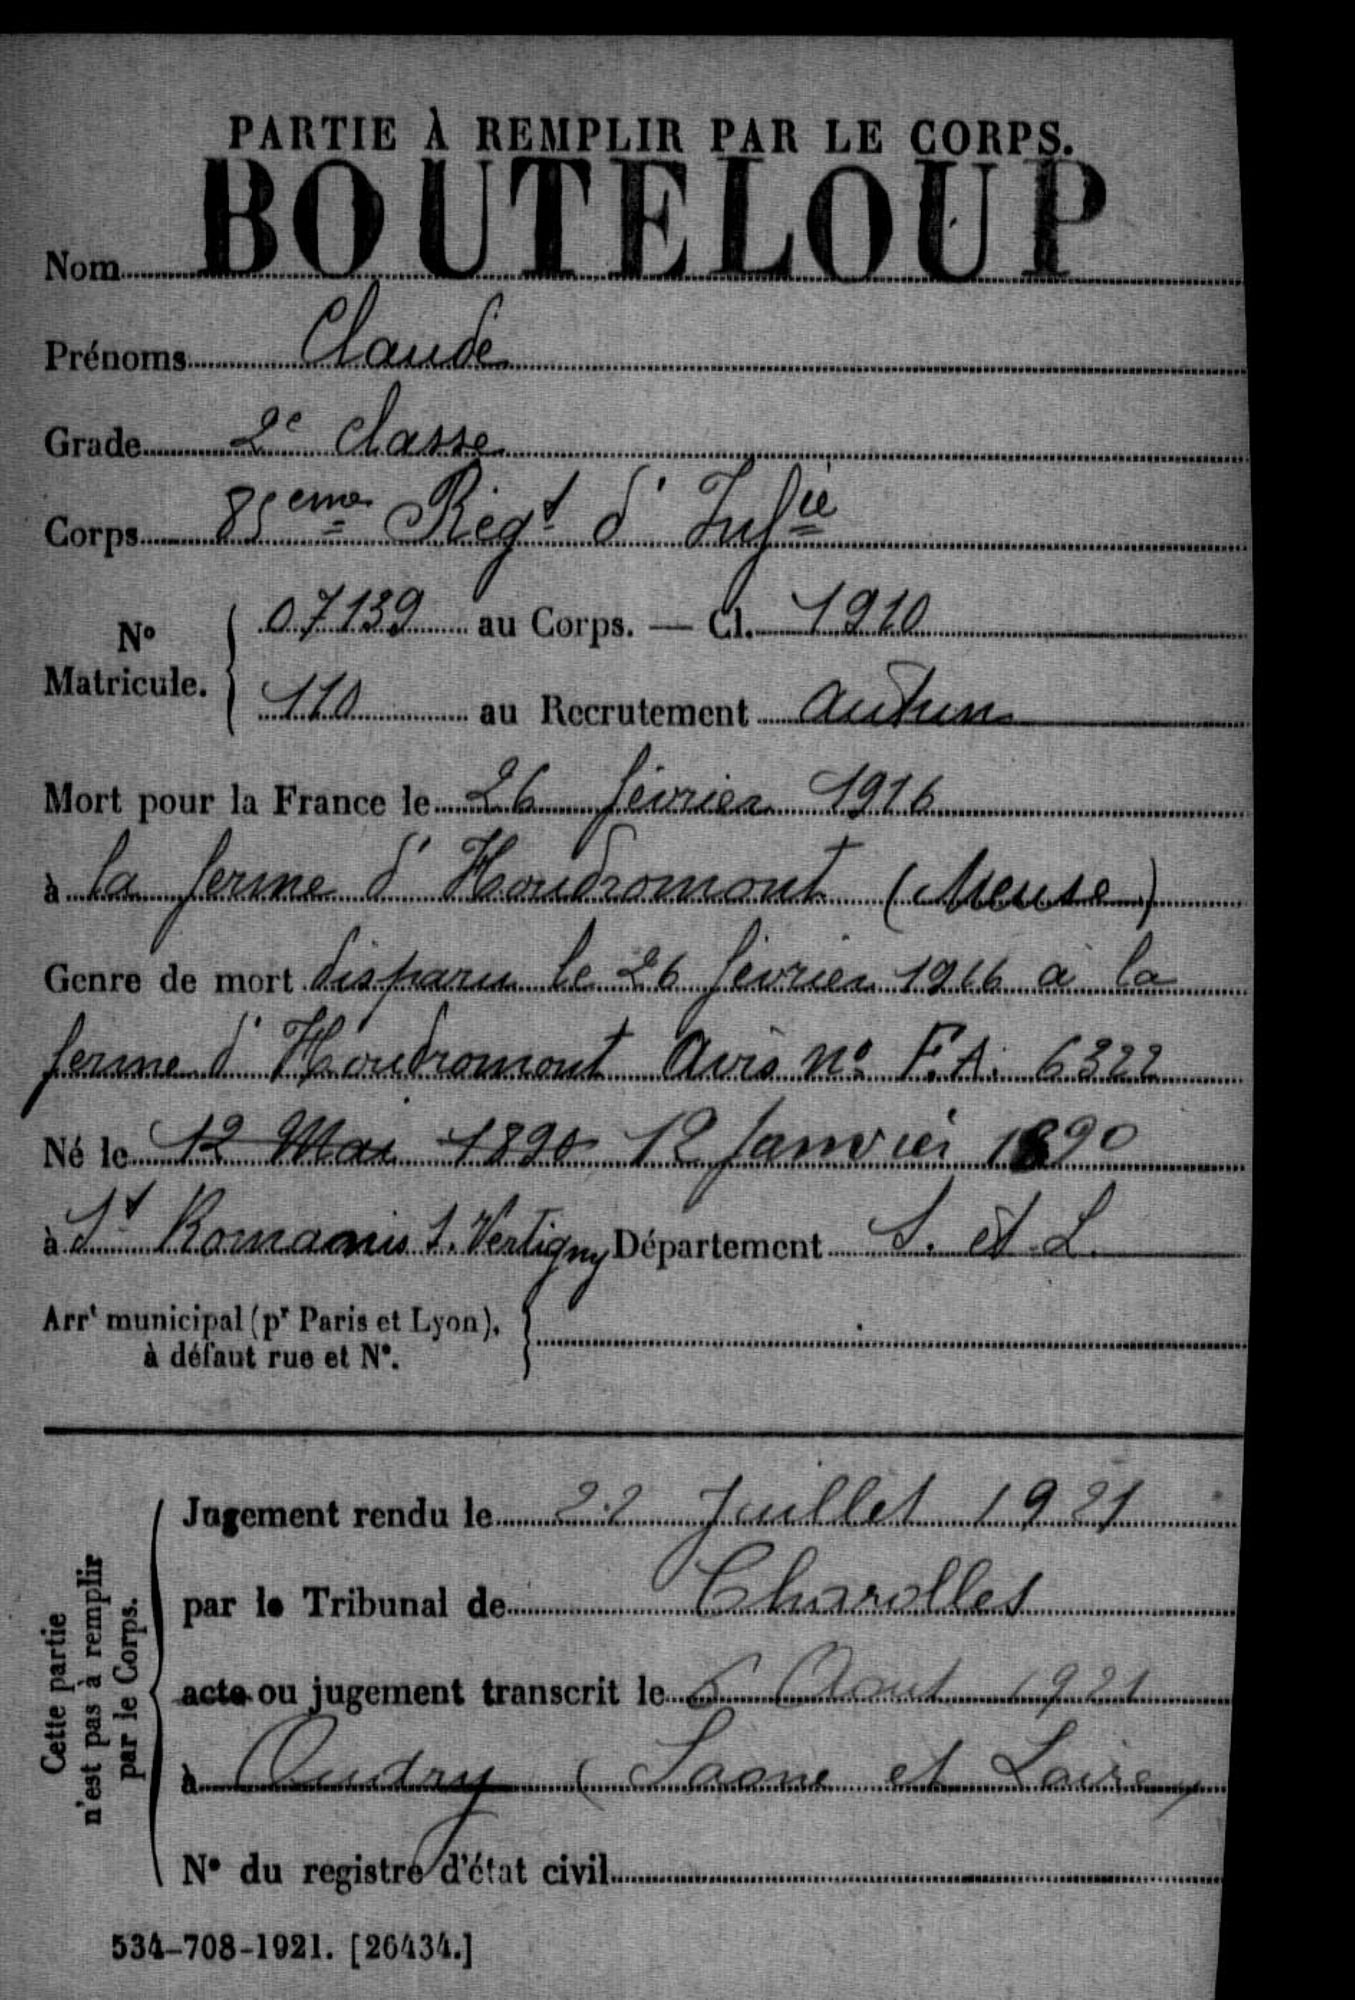 PARTIE À REMPLIR PAR LE CORPS.
Nom BOUTELOUP
Prénoms Claude
Grade 2e classe
Corps 85eme Régt d'Infie
No Matricule. { 07139 au Corps. — Cl. 1910
110 au Recrutement Autun
Mort pour la France le 26 février 1916
à la ferme d'Houdromont (Meuse)
Genre de mort disparu le 26 février 1916 à la
ferme d'Houdromont Avis No F.A. 6322
Né le 12 Mai 1890 12 Janvier 1890
à St Romain s. Vertigny Département S. et L.
Arrt municipal (pr Paris et Lyon),
à défaut rue et N°.
Cette partie
n'est pas à remplir
par le Corps.
Jugement rendu le 22 Juillet 1921
par le Tribunal de Charolles
acte ou jugement transcrit le 6 Aout 1921
à Oudry (Saone et Loire)
N° du registre d'état civil
534-708-1921. [26434.]